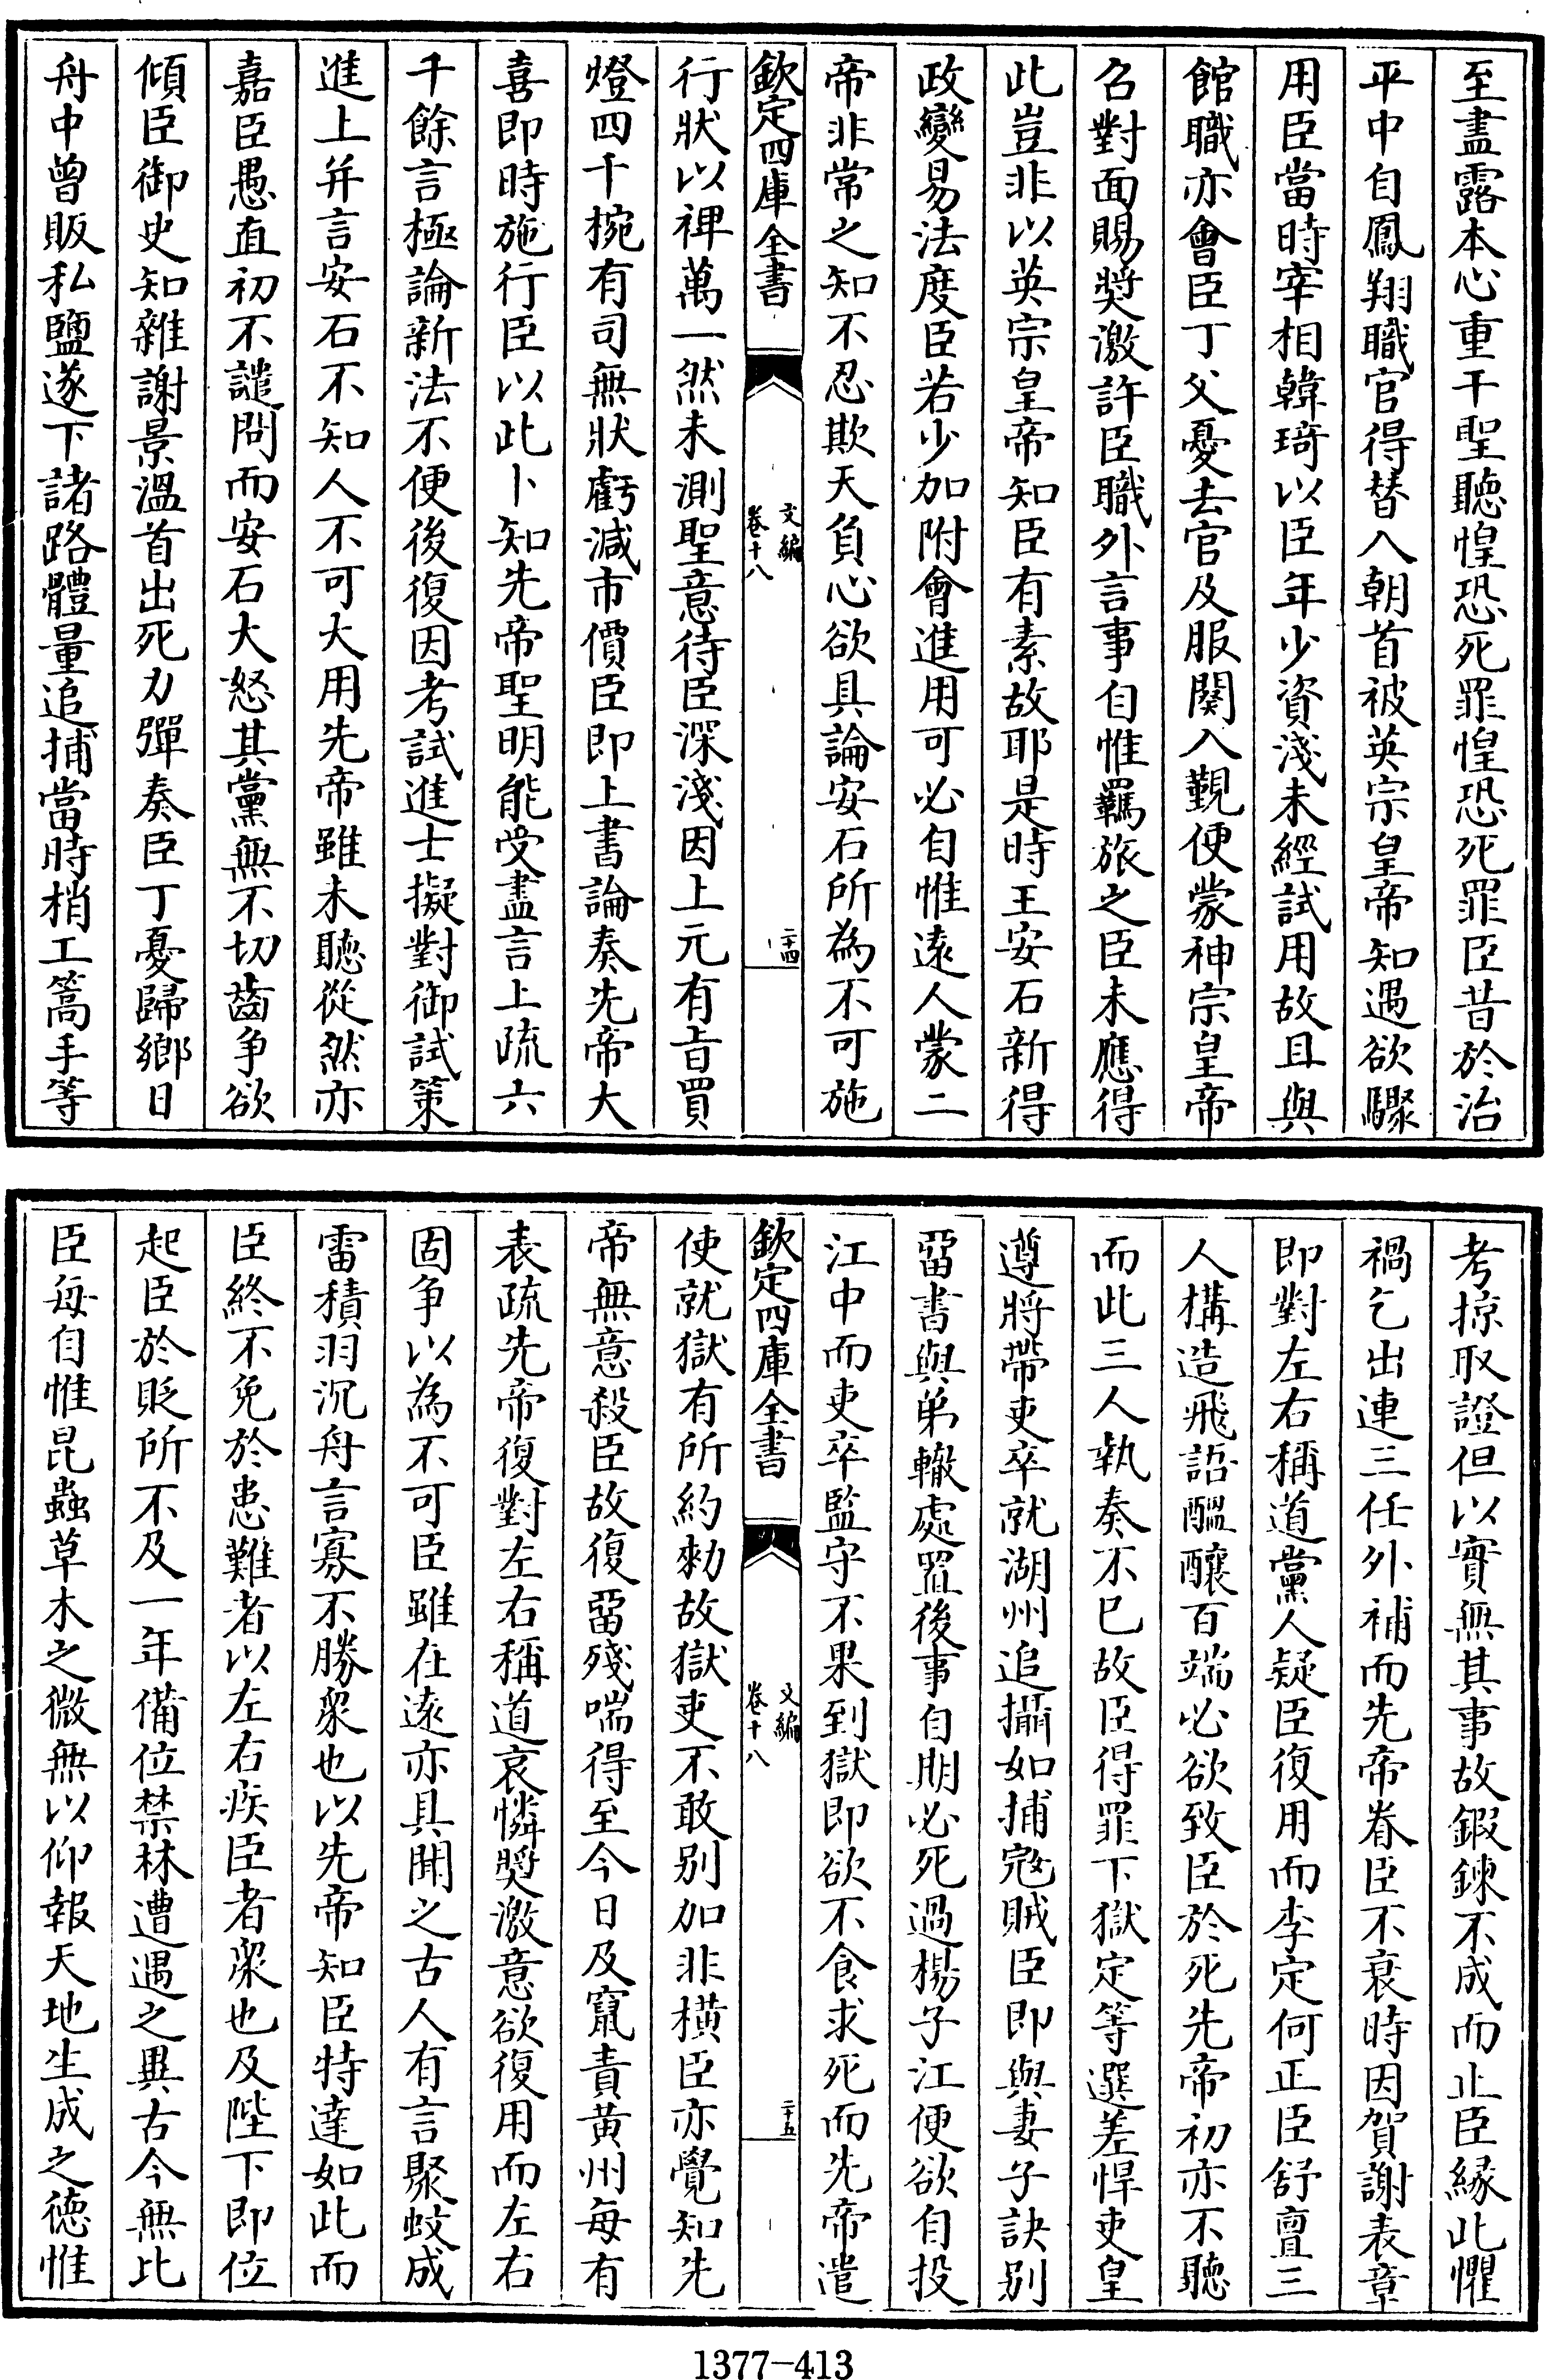 至盡露本心重干聖聽惶恐死罪惶恐死罪臣昔於治
平中自鳳翔職官得替入朝首被英宗皇帝知遇欲驟
用臣當時宰相韓琦以臣年少資淺未經試用故且與
館職亦會臣丁父憂去官及服闋入覲便蒙神宗皇帝
召對面賜奬激許臣職外言事自惟羈旅之臣未應得
此豈非以英宗皇帝知臣有素故耶是時王安石新得
政變易法度臣若少加附會進用可必自惟逺人蒙二
帝非常之知不忍欺天負心欲具論安石所為不可施
欽定四庫全書
文編
卷十八
二十四
行狀以禆萬一然未測聖意待臣深淺因上元有旨買
燈四千椀有司無狀虧減市價臣即上書論奏先帝大
喜即時施行臣以此卜知先帝聖明能受盡言上疏六
千餘言極論新法不便後復因考試進士擬對御試策
進上并言安石不知人不可大用先帝雖未聽從然亦
嘉臣愚直初不譴問而安石大怒其黨無不切齒争欲
傾臣御史知雜謝景溫首出死力彈奏臣丁憂歸鄉日
舟中曾販私鹽遂下諸路體量追捕當時梢工篙手等
考掠取證但以實無其事故鍜鍊不成而止臣緣此懼
禍乞出連三任外補而先帝眷臣不衰時因賀謝表章
即對左右稱道黨人疑臣復用而李定何正臣舒亶三
人構造飛語醖釀百端必欲致臣於死先帝初亦不聽
而此三人執奏不已故臣得罪下獄定等選差悍吏皇
遵將帶吏卒就湖州追攝如捕冦賊臣即與妻子訣别
留書與弟轍處置後事自期必死過楊子江便欲自投
江中而吏卒監守不果到獄即欲不食求死而先帝遣
欽定四庫全書
文編
卷十八
二十五
使就獄有所約勑故獄吏不敢别加非横臣亦覺知先
帝無意殺臣故復留殘喘得至今日及竄責黄州每有
表疏先帝復對左右稱道哀憐奬激意欲復用而左右
固争以為不可臣雖在逺亦具聞之古人有言聚蚊成
雷積羽沉舟言寡不勝衆也以先帝知臣特達如此而
臣終不免於患難者以左右疾臣者衆也及陛下即位
起臣於貶所不及一年備位禁林遭遇之異古今無比
臣每自惟昆蟲草木之微無以仰報天地生成之德惟
1377-413